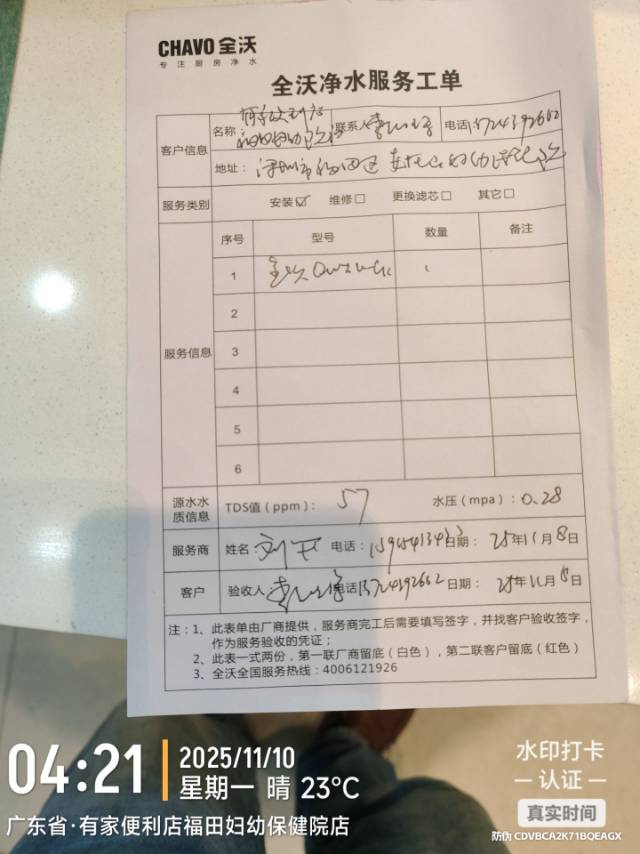 CHAVO 全沃
专注厨房净水
全沃净水服务工单
客户信息 名称 联系人 电话:
地址: 深圳市福田区
服务类别 安装☑ 维修□ 更换滤芯□ 其它□
服务信息 序号 型号 数量 备注
1 全沃
2
3
4
5
6
源水水质信息 TDS值(ppm): 57 水压(mpa): 0.28
服务商 姓名: 电话: 日期: 25年11月8日
客户 验收人: 电话 日期: 25年11月8日
注: 1、此表单由厂商提供,服务商完工后需要填写签字,并找客户验收签字,
作为服务验收的凭证;
2、此表一式两份,第一联厂商留底(白色),第二联客户留底(红色)
3、全沃全国服务热线: 4006121926
04:21 2025/11/10
星期一 晴 23℃
广东省·有家便利店福田妇幼保健院店
水印打卡
认证
真实时间
防伪 CDVBCA2K71BQEAGX